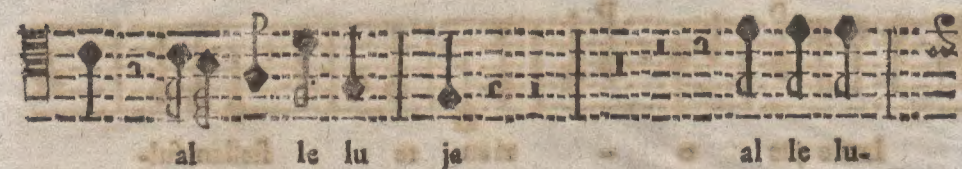 al le lu ja al le lu-